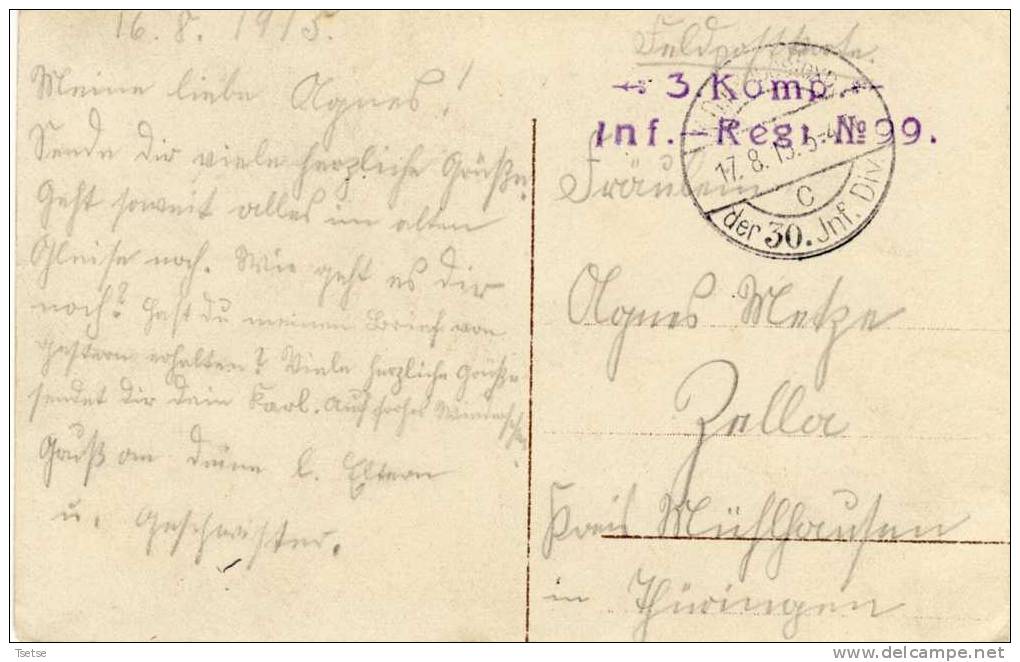 16. 8. 1915.
Meine liebe Agnes!
Sende dir viele herzliche Grüße.
Geht soweit alles im alten
Gleise noch. Wie geht es dir
noch? Hast du meinen Brief von
gestern erhalten? Viele herzliche Grüße
sendet dir dein Karl. Auf frohes Wiedersehen
Gruß an deine l. Eltern
u. Geschwister.
Feldpostkarte.
3. Komp.
Inf.-Regt. № 99.
17. 8. 15. 3-4
C
der 30. Jnf. Div.
Fräulein
Agnes Metze
Zella
Kreis Mühlhausen
in Thüringen
Tsetse
delcampe.net